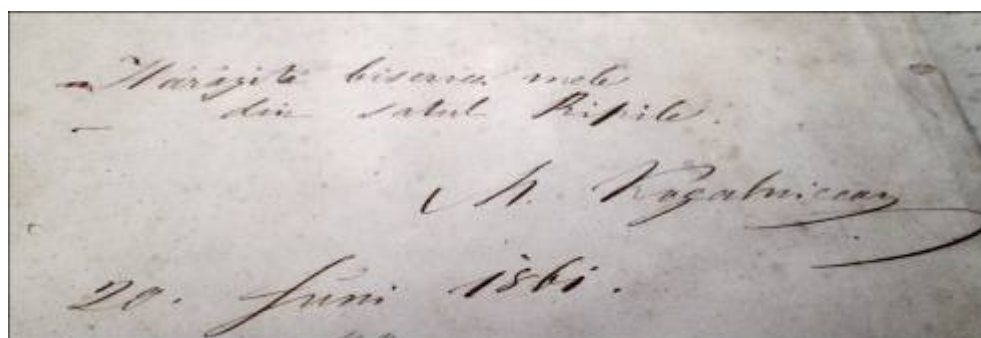 Hărăzită bisericei mele
din satul Rîpile.
M. Kogalniceanu
20. Juni 1861.